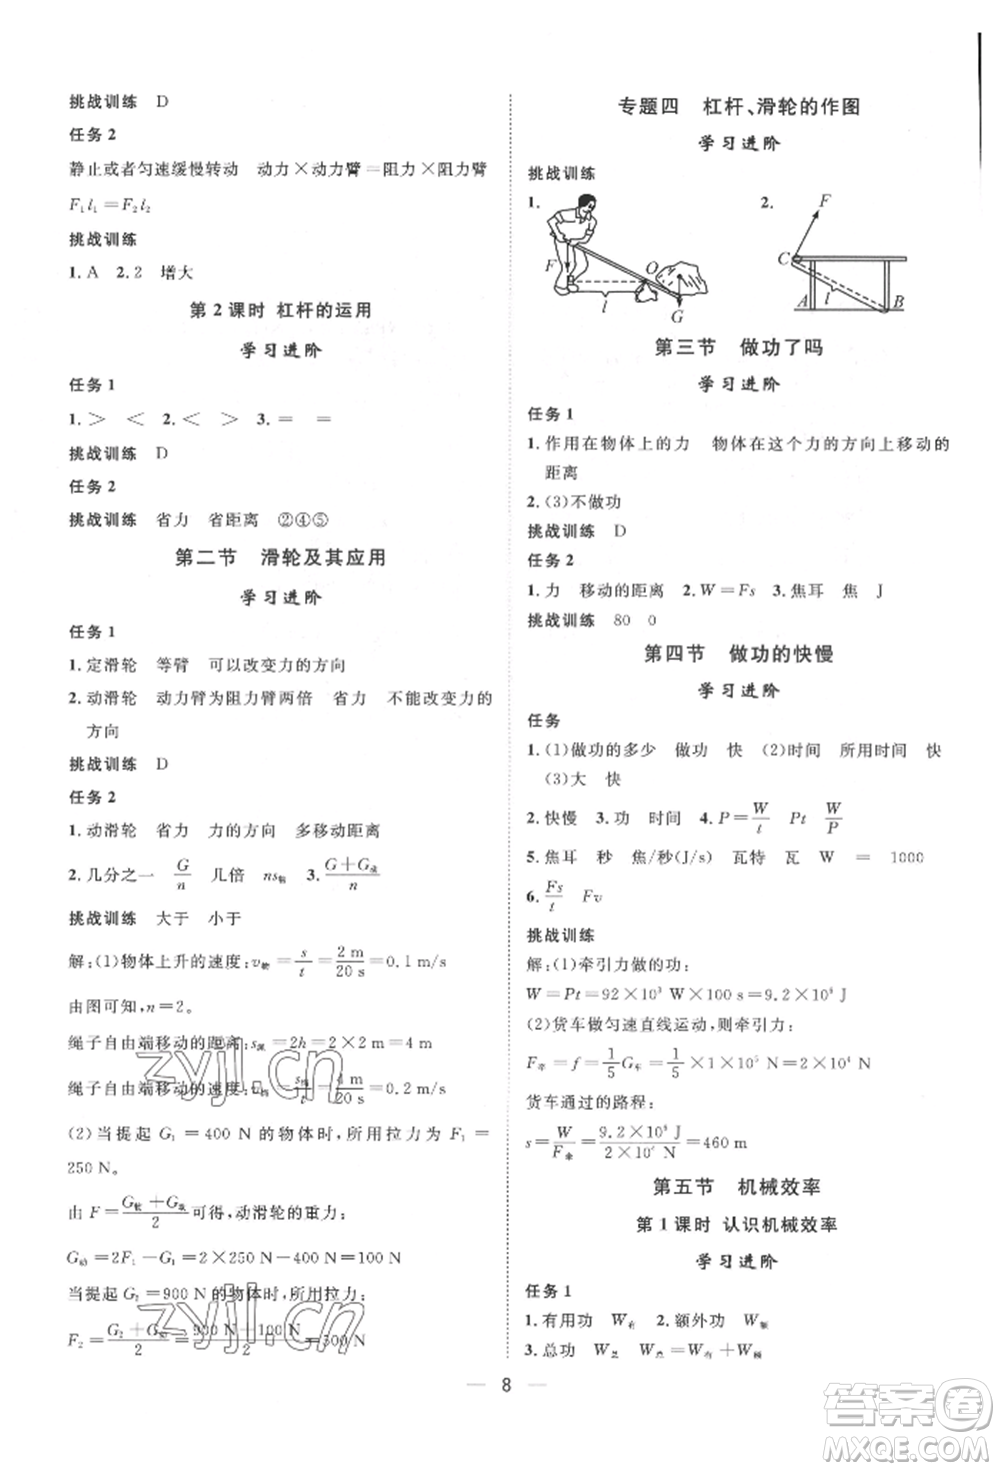 挑战训练 D
任务 2
静止或者匀速缓慢转动 动力×动力臂=阻力×阻力臂
F₁l₁=F₂l₂
挑战训练
1. A 2. 2 增大
第 2 课时 杠杆的运用
学习进阶
任务 1
1. > < 2. < > 3. = =
挑战训练 D
任务 2
挑战训练 省力 省距离 ②④⑤
第二节 滑轮及其应用
学习进阶
任务 1
1. 定滑轮 等臂 可以改变力的方向
2. 动滑轮 动力臂为阻力臂两倍 省力 不能改变力的
方向
挑战训练 D
任务 2
1. 动滑轮 省力 力的方向 多移动距离
2. 几分之一 G/n 几倍 ns物 3. (G+G动)/n
挑战训练 大于 小于
解:(1)物体上升的速度:v物=s/t=2 m/20 s=0.1 m/s
由图可知,n=2。
绳子自由端移动的距离:s绳=2h=2×2 m=4 m
绳子自由端移动的速度:v绳=s绳/t=4 m/20 s=0.2 m/s
(2)当提起 G₁=400 N 的物体时,所用拉力为 F₁=
250 N。
由 F=(G物+G动)/2可得,动滑轮的重力:
G动=2F₁-G₁=2×250 N-400 N=100 N
当提起 G₂=900 N 的物体时,所用的拉力:
F₂=(G₂+G动)/2=(900 N+100 N)/2=500 N
专题四 杠杆、滑轮的作图
学习进阶
挑战训练
1. F O l G 2. F C A l B
第三节 做功了吗
学习进阶
任务 1
1. 作用在物体上的力 物体在这个力的方向上移动的
距离
2. (3)不做功
挑战训练 D
任务 2
1. 力 移动的距离 2. W=Fs 3. 焦耳 焦 J
挑战训练 80 0
第四节 做功的快慢
学习进阶
任务
1. (1)做功的多少 做功 快 (2)时间 所用时间 快
(3)大 快
2. 快慢 3. 功 时间 4. P=W/t Pt W/P
5. 焦耳 秒 焦/秒(J/s) 瓦特 瓦 W = 1000
6. Fs/t Fv
挑战训练
解:(1)牵引力做的功:
W=Pt=92×10³ W×100 s=9.2×10⁶ J
(2)货车做匀速直线运动,则牵引力:
F牵=f=1/5G车=1/5×1×10⁵ N=2×10⁴ N
货车通过的路程:
s=W/F牵=9.2×10⁶ J/2×10⁴ N=460 m
第五节 机械效率
第 1 课时 认识机械效率
学习进阶
任务 1
1. 有用功 W有 2. 额外功 W额
3. 总功 W总 W总=W有+W额
8
zyjl.cn
zyjl.cn
答案卷
MXQE.COM